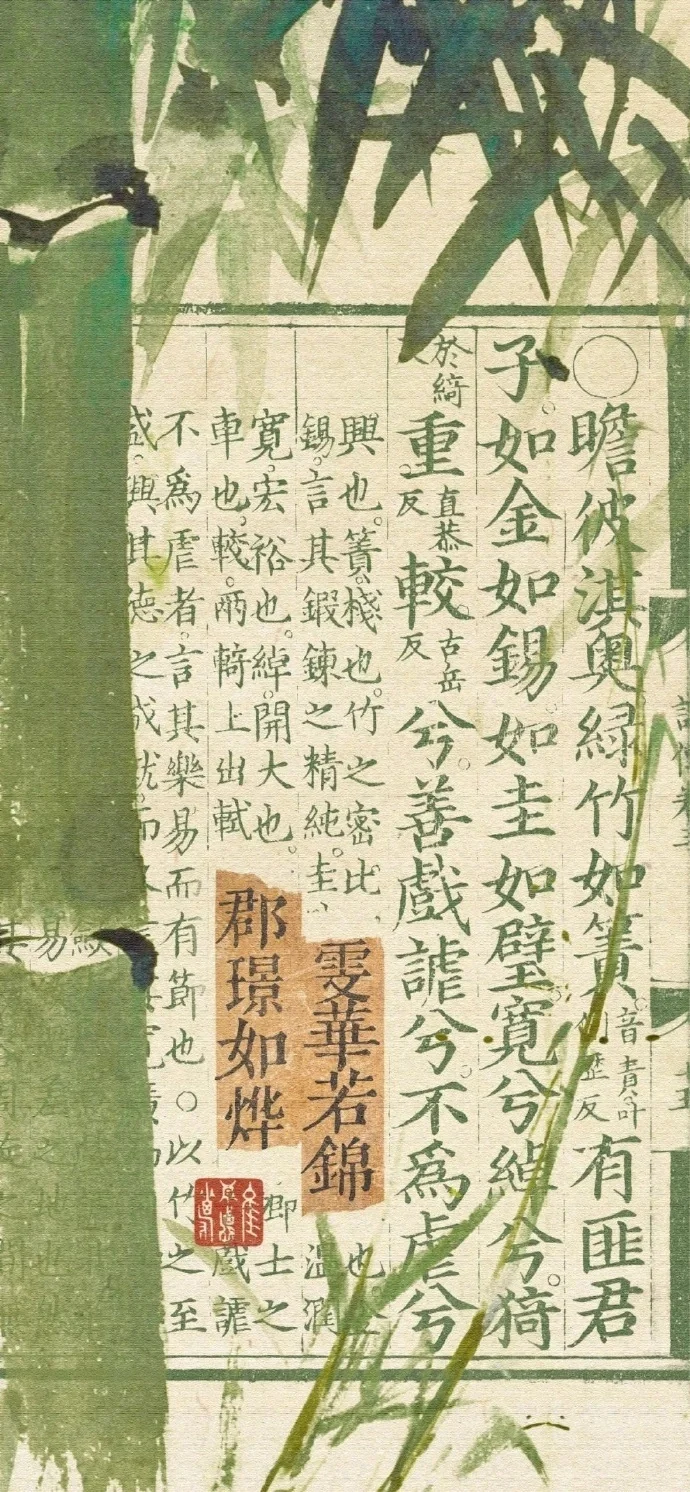 ○瞻彼淇奧緑竹如簀音責叶反有匪君
子如金如錫如圭如璧寬兮綽兮猗
於綺重直恭反較古岳反兮善戲謔兮不爲虐兮
興也。簀棧也。竹之密比
也
錫。言其鍛鍊之精純。圭、
溫潤
雯華若錦
寬。宏裕也。綽。開大也。○
卿士之
車也。較。兩輢上出軾
戲謔
郡璟如烨
不爲虐者。言其樂易而有節也。○以竹之至
盛。興其德之成就而